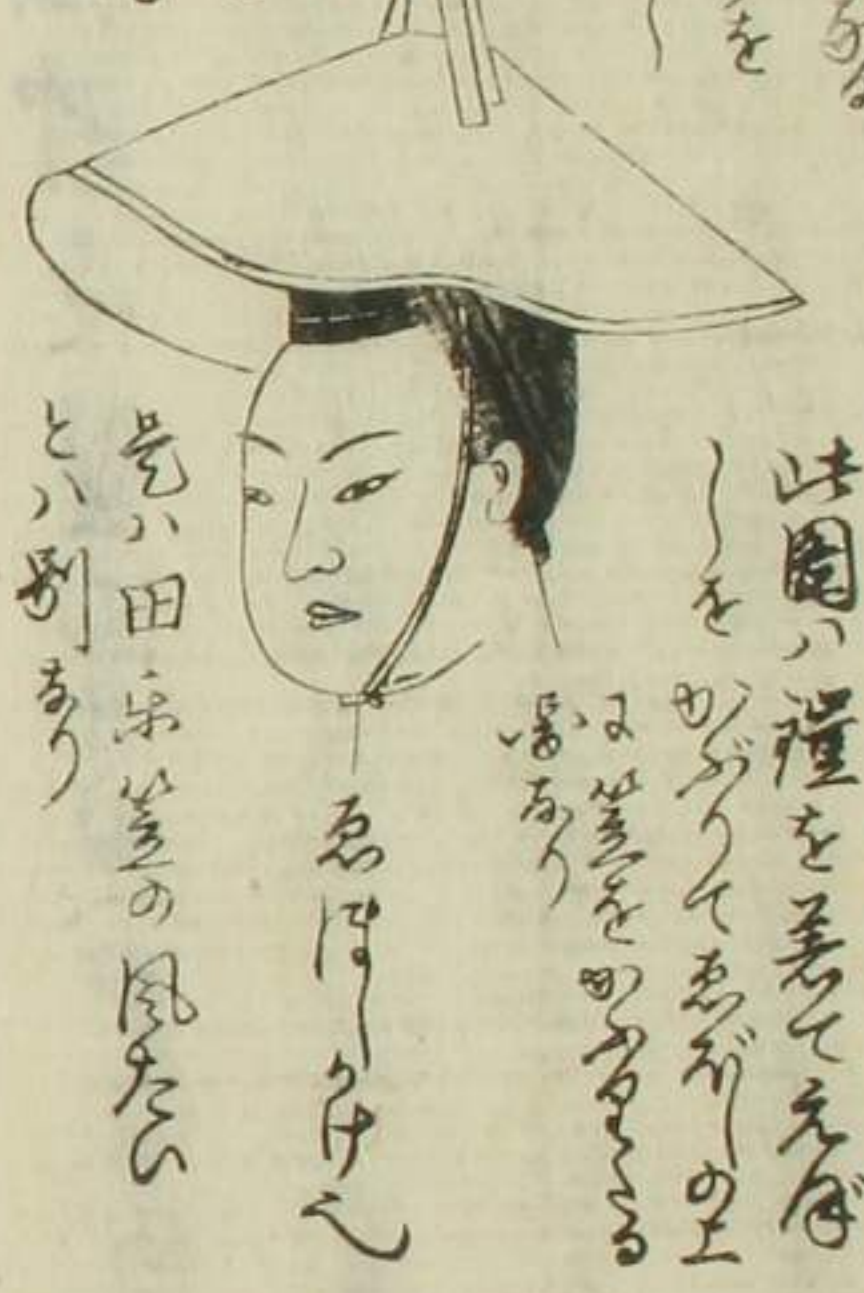 を
此圖ハ鎧を着てえぼ
しをかぶりてゑぼしの上
に笠をかふりたる
啚なり
ゑぼしかけ也
是ハ田楽笠の風たい
とハ別なり